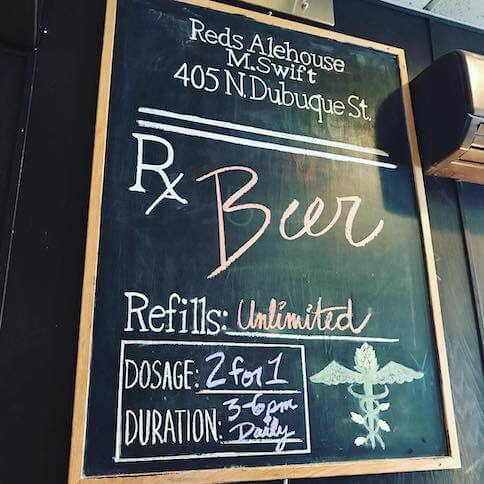 Reds Alehouse
M.Swift
405 N.Dubuque St.
Rx Beer
Refills: Unlimited
DOSAGE: 2 for 1
DURATION: 3-6pm
Daily